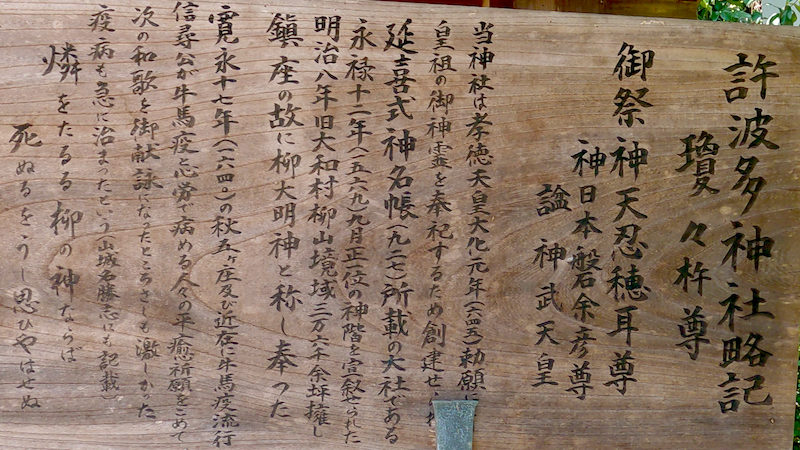 許波多神社略記
瓊々杵尊
御祭神 天忍穂耳尊
神日本磐余彦尊
諡 神武天皇
当神社は孝徳天皇大化元年(六四五)勅願に
皇祖の御神霊を奉祀するため創建せ
延喜式神名帳(九二七)所載の大社である
永禄十二年(一五六九)九月正位の神階を宣叙せられた
明治八年旧大和村柳山境域三万六千余坪擁し
鎮座の故に柳大明神と称し奉った
寛永十七年(一六四〇)の秋五ヶ庄及び近在に牛馬疫流行
信尋公が牛馬疫と心労で病める人々の平癒祈願をこめて
次の和歌を御献詠になったところさしも激しかった
疫病も急に治まったという(山城名勝志にも記載)
憐をたるる柳の神ならは
死ぬるをうし思ひやはせぬ